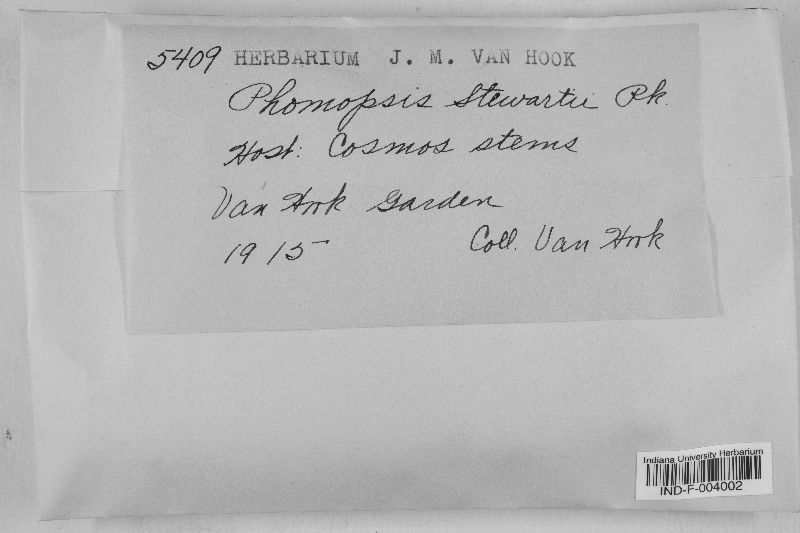 5409 HERBARIUM J. M. VAN HOOK
Phomopsis Stewartii Pk.
Host: Cosmos stems
Van Hook Garden
1915 Coll. Van Hook
Indiana University Herbarium
IND-F-004002